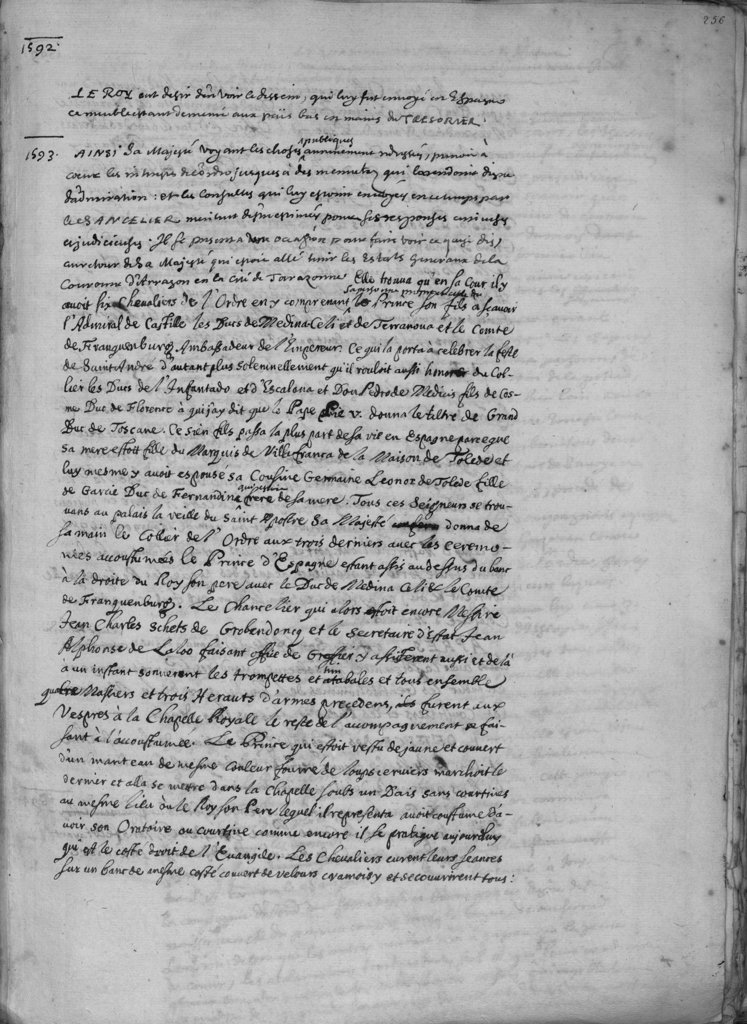 256
1592
LE ROY eut desir d'en voir le dessein, qui luy fut envoyé en Espaigne
ce meuble estant demeuré aux païs bas en mains du TRESORIER.
1593.
publiques
AINSI Sa Majesté voyant les choses
cœur les
d'admiration: et les Consultes qui luy
le CHANCELIER
et judicieuses. Il se presenta une occasion pour faire voir ce que je dis
au retour de Sa Majesté qui estoit allé tenir les Estats Generaux de la
Couronne d'Arragon en la Cité de Tarazonne. Elle trouva qu'en sa Cour il y
avoit six Chevaliers de l'Ordre en y comprenant le Prince son fils a sçavoir
l'Admiral de Castille les Ducs de Medina-Celi et de Terranova et le Comte
de Franquenburg Ambassadeur de l'Empereur. Ce qui la porta à celebrer la feste
de Saint André d'autant plus solemnellement qu'il vouloit aussi honorer du Col-
lier les Ducs de l'Infantado et d'Escalona et Don Pedro de Medicis fils de Cos-
me Duc de Florence à qui j'ay dit que le Pape Pie V. donna le tiltre de Grand
Duc de Toscane. Ce sien fils passa la plus part de sa vie en Espagne parceque
sa mere estoit fille du Marquis de Villafranca de la Maison de Tolede et
luy mesme y avoit espousé sa Cousine Germaine Leonor de Tolede fille
de Garcie Duc de Fernandine frere de sa mere. Tous ces Seigneurs se trou-
vans au palais la veille du Saint Apostre Sa Majesté donna de
sa main le Collier de l'Ordre aux trois derniers avec les ceremo-
nies accoustumées le Prince d'Espagne estant assis au dessus du banc
à la droite du Roy son pere avec le Duc de Medina Celi et le Comte
de Franquenburg. Le Chancelier qui alors estoit encore Messire
Jean Charles Schets de Grobendoncq et le Secretaire d'Estat Jean
Alphonse de Laloo faisant office de Greffier y assisterent aussi et de là
à un instant sonnerent les trompettes et atabales et tous ensemble
quatre Massiers et trois Herauts d'armes precedens, furent aux
Vespres à la Chapelle Royale le reste de l'accompagnement se fai-
sant à l'accoustumée. Le Prince qui estoit vestu de jaune et couvert
d'un manteau de mesme couleur fourré de loups cerviers marchoit le
dernier et alla se mettre dans la Chapelle soubs un Dais sans courtines
au mesme lieu où le Roy son Pere lequel il representa avoit coustume d'a-
voir son Oratoire ou courtine comme encore il se pratique aujourdhuy
qui est le costé droit de l'Evangile. Les Chevaliers eurent leurs seances
sur un banc de mesme costé couvert de velours cramoisy et se couvrirent tous: